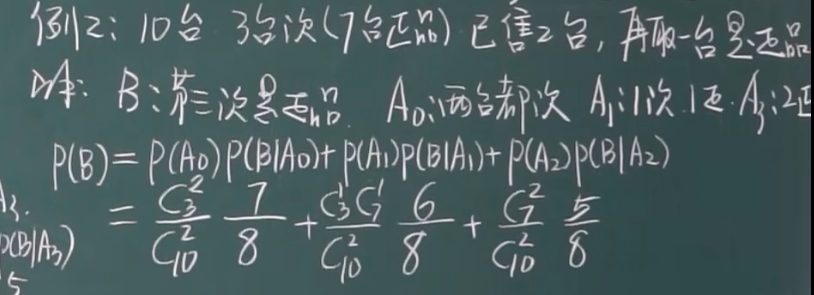 例2: 10台 3台次(7台正品) 已售2台, 再取一台是正品
解: B:第三次是正品. A₀:两台都次 A₁:1次.1正. A₃:2正
P(B)=P(A₀)P(B|A₀)+P(A₁)P(B|A₁)+P(A₂)P(B|A₂)
= C₃²/C₁₀² 7/8 + C₃¹C₇¹/C₁₀² 6/8 + C₇²/C₁₀² 5/8
P(B|A₃)
5